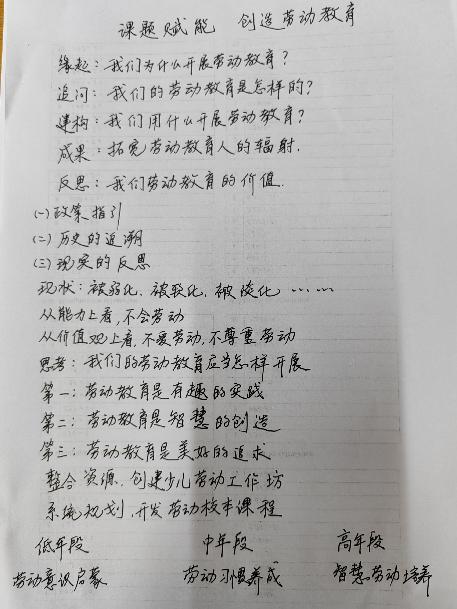 课题赋能 创造劳动教育
缘起：我们为什么开展劳动教育？
追问：我们的劳动教育是怎样的？
建构：我们用什么开展劳动教育？
成果：拓宽劳动教育人的辐射.
反思：我们劳动教育的价值.
(一)政策指引
(二)历史的追溯
(三)现实的反思
现状：被弱化、被软化、被淡化……
从能力上看,不会劳动
从价值观上看,不爱劳动,不尊重劳动
思考：我们的劳动教育应当怎样开展
第一：劳动教育是有趣的实践
第二：劳动教育是智慧的创造
第三：劳动教育是美好的追求
整合资源,创建少儿劳动工作坊
系统规划,开发劳动校本课程
低年段 中年段 高年段
劳动意识启蒙 劳动习惯养成 智慧劳动培养